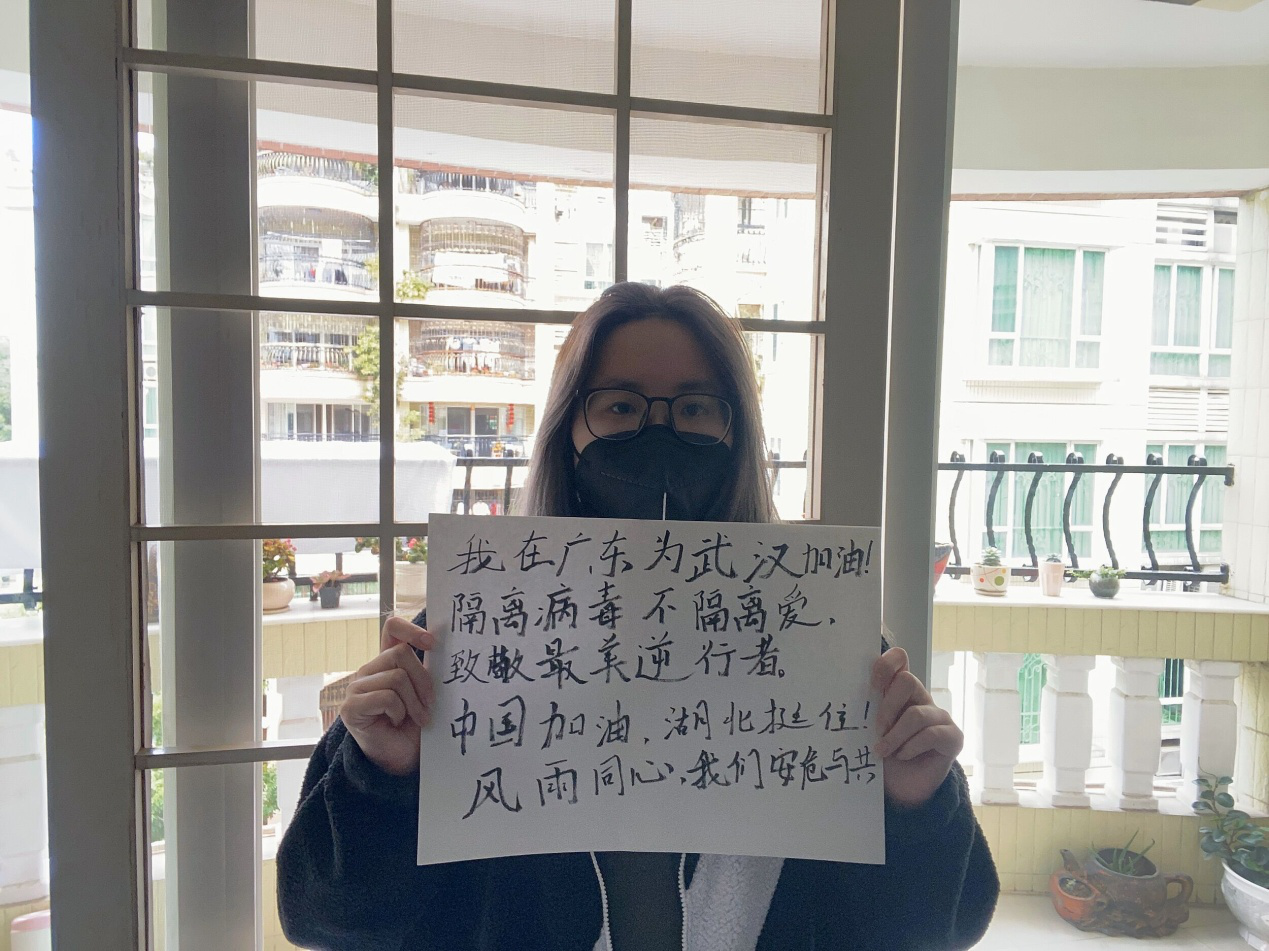 我在广东为武汉加油!
隔离病毒不隔离爱,
致敬最美逆行者。
中国加油,湖北挺住!
风雨同心,我们安危与共